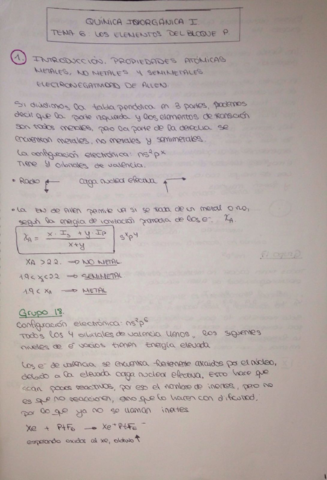 QUIMICA INORGÁNICA I
TEMA 6 LOS ELEMENTOS DEL BLOQUE P
1. INTRODUCCIÓN. PROPIEDADES ATÓMICAS
METALES, NO METALES Y SEMIMETALES
ELECTRONEGATIVIDAD DE ALLEN
Si dividimos la tabla periódica en 3 partes, podemos
decir que la parte izquierda y los elementos de transición
son todos metales, pero la parte de la derecha se
encuentran metales, no metales y semimetales.
La configuración electrónica: ns² pˣ
Tiene 4 orbitales de valencia.
• Radio carga nuclear efectiva
• La EN de Allen permite ver si se trata de un metal o no,
según la energía de ionización promedio de los e⁻. χA
χA = x · Is + y · Ip / x+y sˣpʸ
XA > 22 → NO METAL
19 < χ < 22 → SEMIMETAL
19 < χA → METAL
Grupo 18
Configuración electrónica: ns² p⁶
Todos los 4 orbitales de valencia llenos, los siguientes
niveles de e⁻ vacíos tienen energía elevada.
Los e⁻ de valencia se encuentran fuertemente atraídos por el núcleo,
debido a la elevada carga nuclear efectiva, esto hace que
sean pocos reactivos, por eso el nombre de inertes, pero no
es que no reaccionen, sino que lo hacen con dificultad,
por lo que ya no se llaman inertes
Xe + PtF₆ → Xe⁺PtF₆⁻